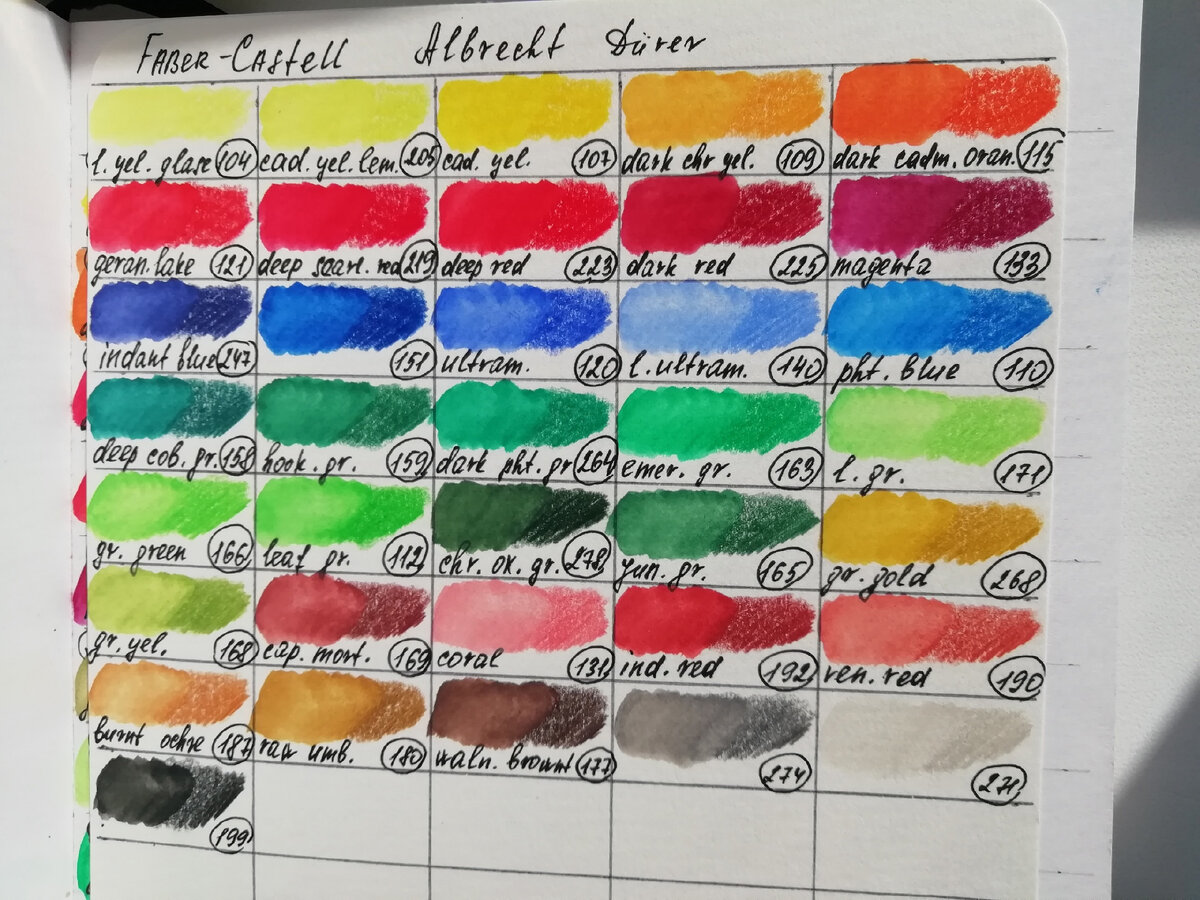 FABER-CASTELL Albrecht Dürer
l. yel. glase 104 cad. yel. lem. 205 cad. yel. 107 dark chr yel. 109 dark cadm. oran. 115
geran. lake 121 deep scarl. red 219 deep red 223 dark red 225 magenta 133
indant blue 247 151 ultram. 120 l. ultram. 140 pht. blue 110
deep cob. gr. 158 hook. gr. 159 dark pht. gr 264 emer. gr. 163 l. gr. 171
gr. green 166 leaf gr. 112 chr. ox. gr. 278 jun. gr. 165 gr. gold 268
gr. yel. 168 cap. mort. 169 coral 131 ind. red 192 ven. red 190
burnt ochre 187 raw umb. 180 waln. brownt 177 274 271
199